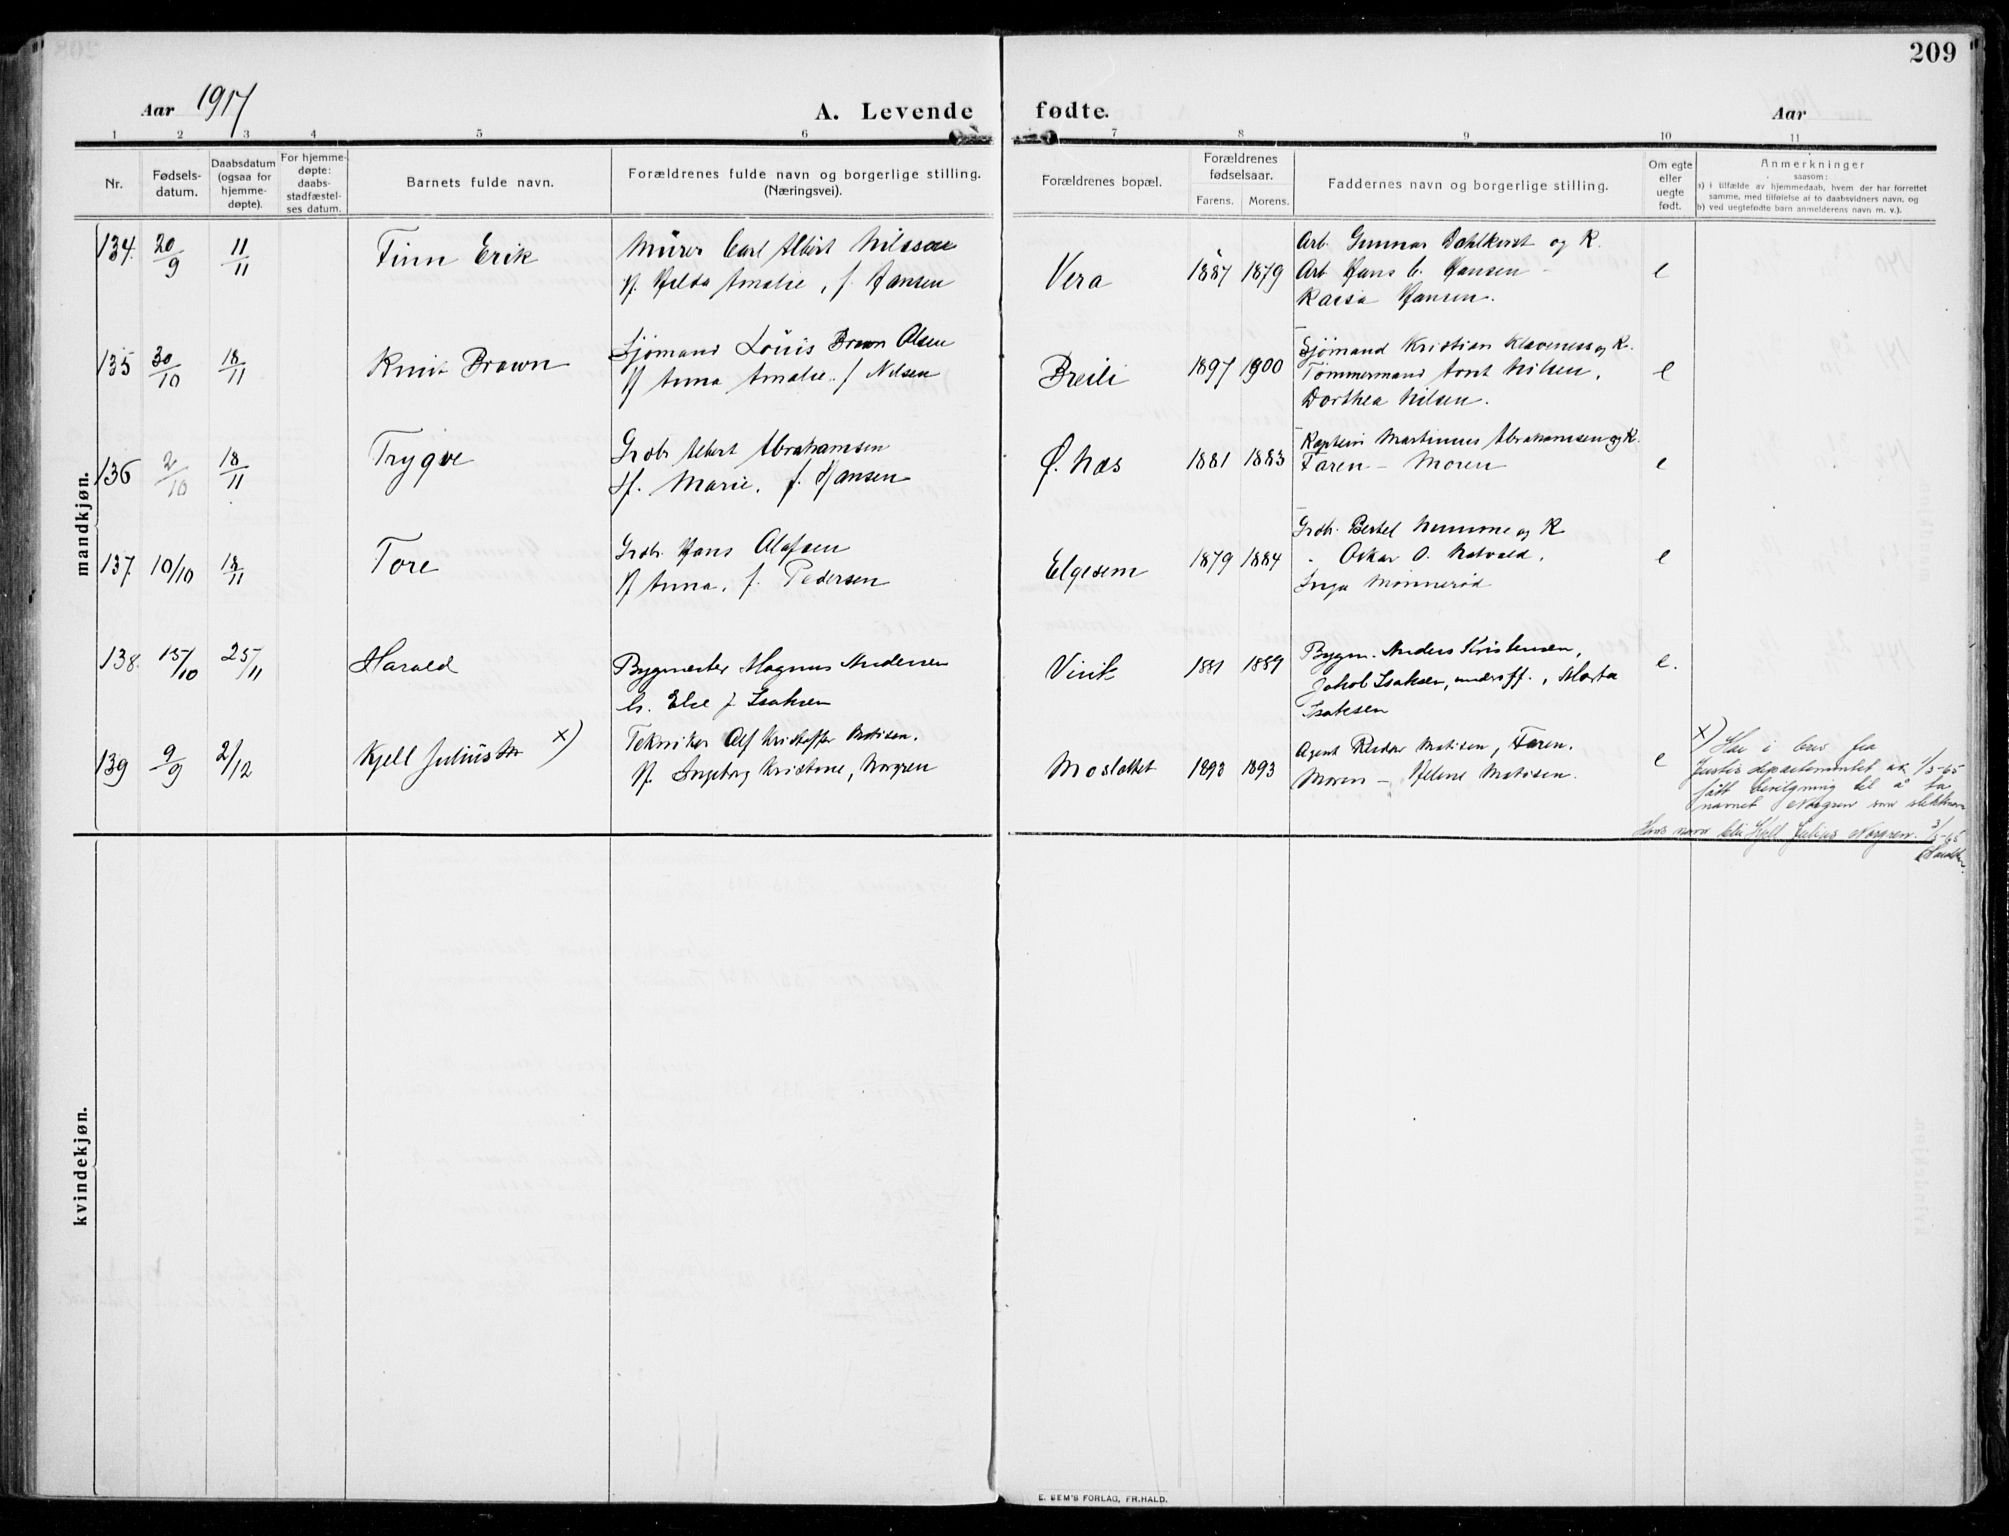 209
Aar 1917
A. Levende fødte.
Aar
1 2 3 4 5 6 7 8 9 10 11
Nr.
Fødsels-
datum.
Daabsdatum
(ogsaa for
hjemme-
døpte).
For hjemme-
døpte:
daabs-
stadfæstel-
ses datum.
Barnets fulde navn.
Forældrenes fulde navn og borgerlige stilling.
(Næringsvei).
Forældrenes bopæl.
Forældrenes
fødselsaar.
Farens. Morens.
Faddernes navn og borgerlige stilling.
Om egte
eller
uegte
født.
Anmerkninger
saasom:
a) i tilfælde av hjemmedaab, hvem der har forrettet
samme, med tilføielse af to daabsvidners navn, og
b) ved uegtefødte barn anmelderens navn m. v.).
mandkjøn.
134. 20/9 11/11 Finn Erik
Mürer Carl Albert Nilssen
H. Hilda Amalie, f. Hansen
Vera 1887 1879
Arb. Gunnar Dahlkvist og K.
Arb. Hans C. Hansen –
Hansen.
e
135 30/10 18/11 Knut Brown
Sjømand Louis Brown Olsen
H Anna Amalie. f Nilsen
Breili 1897 1900
Sjømand Kristian Klaveness og K.
Tømmermand Arnt Nilsen,
Dorthea Nilsen.
e
136 2/10 18/11 Trygve
Grdbr Albert Abrahamsen
H. Marie, f. Hansen
Ø. Næs 1881 1883
Kaptein Martinius Abrahamsen og K.
Faren – Moren
e
137. 10/10 18/11 Tore
Grdbr. Hans Olafsen
H Anna, f. Pedersen
Elgesem 1879 1884
Grdbr. Bertel Numme og K
" Oskar O.
Inga
e
138. 15/10 25/11 Harald
Bygmester Magnus Andersen
h. Else f Isaksen
Virik 1881 1889
Bygm. Anders Kristensen,
Jakob Isaksen, underoff., Marta
Isaksen
e.
139 9/9 2/12 Kjell Julius x)
Tekniker Alf Kristoffer Matisen.
H. Ingeborg Kristine, Norgren
Moslættet 1893 1893
Agent Reidar Matisen, Faren.
Moren – Helene Matisen.
e
x) Har i brev fra
Justisdepartementet av 1/3-65
fått bevilgning til å ta
navnet Norgren som slektsnavn
Hans navn blir Kjell Julius Norgren. 3/3-65
kvindekjøn.
E. SEM'S FORLAG, FR.HALD.